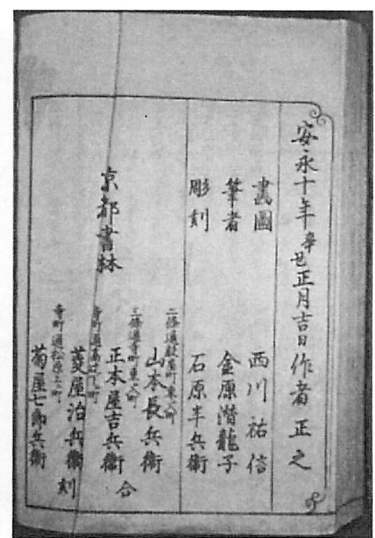 安永十年辛丑正月吉日 作者 正之
畫圖 西川祐信
筆者 金原潛龍子
彫刻 石原半兵衛
京都書林
二條通 町東入町
山本長兵衛
三條通寺町東入町
正木屋吉兵衛 合
寺町通 町
菱屋治兵衛 刻
寺町通松原上ル町
菊屋七郎兵衛